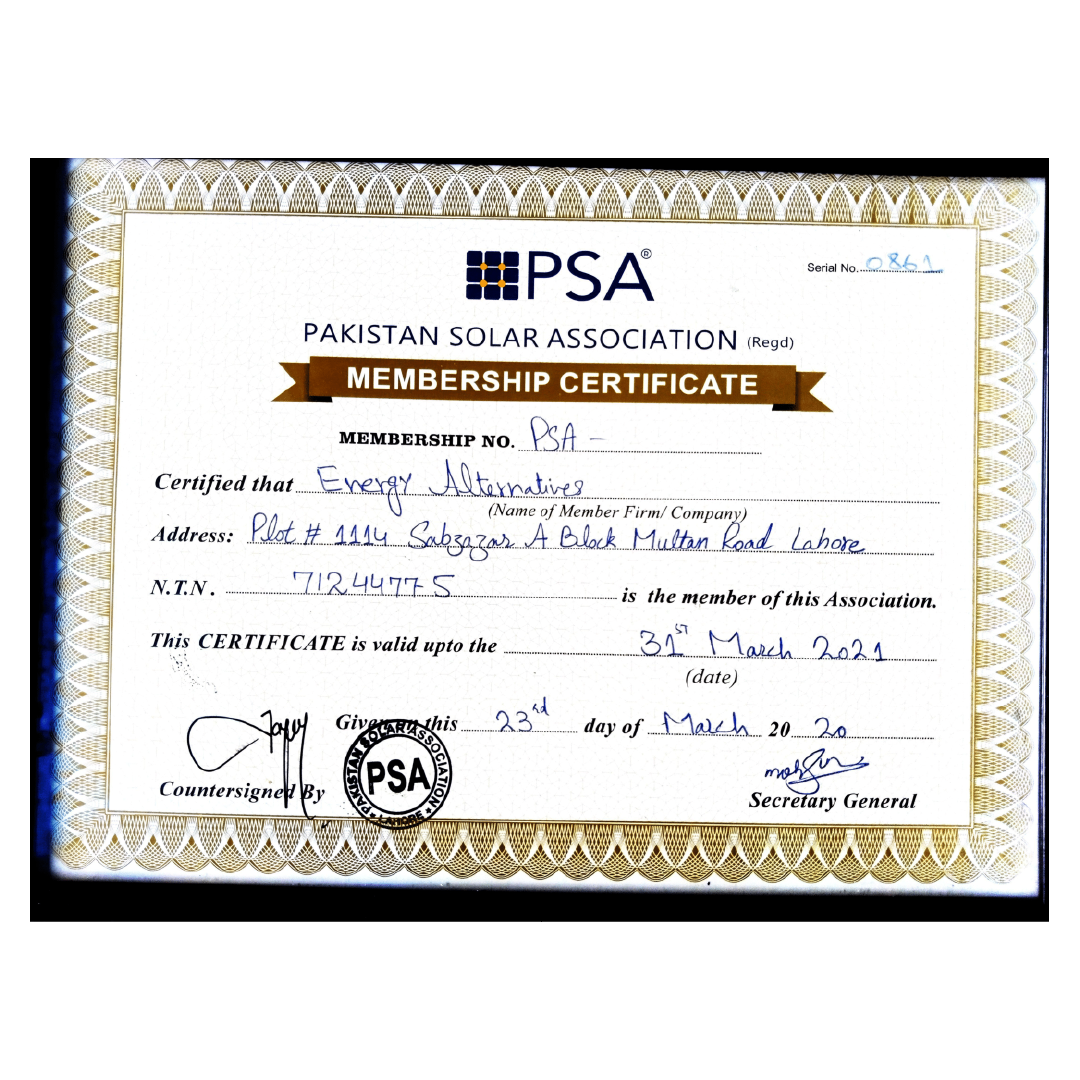 PSA®
Serial No. 0861
PAKISTAN SOLAR ASSOCIATION (Regd)
MEMBERSHIP CERTIFICATE
MEMBERSHIP NO. PSA -
Certified that Energy Alternatives
(Name of Member Firm/ Company)
Address: Plot # 1114 Sabzazar A Block Multan Road Lahore
N.T.N. 7124477-5 is the member of this Association.
This CERTIFICATE is valid upto the 31ST March 2021
(date)
Given on this 23rd day of March 20 20
PAKISTAN SOLAR ASSOCIATION
PSA
★ LAHORE ★
Countersigned By
Secretary General